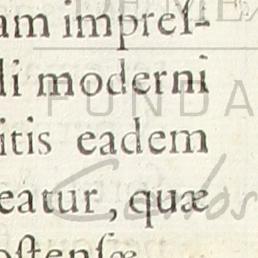 am impreſ-
li moderni
itis eadem
eatur, quæ
oſtenſæ